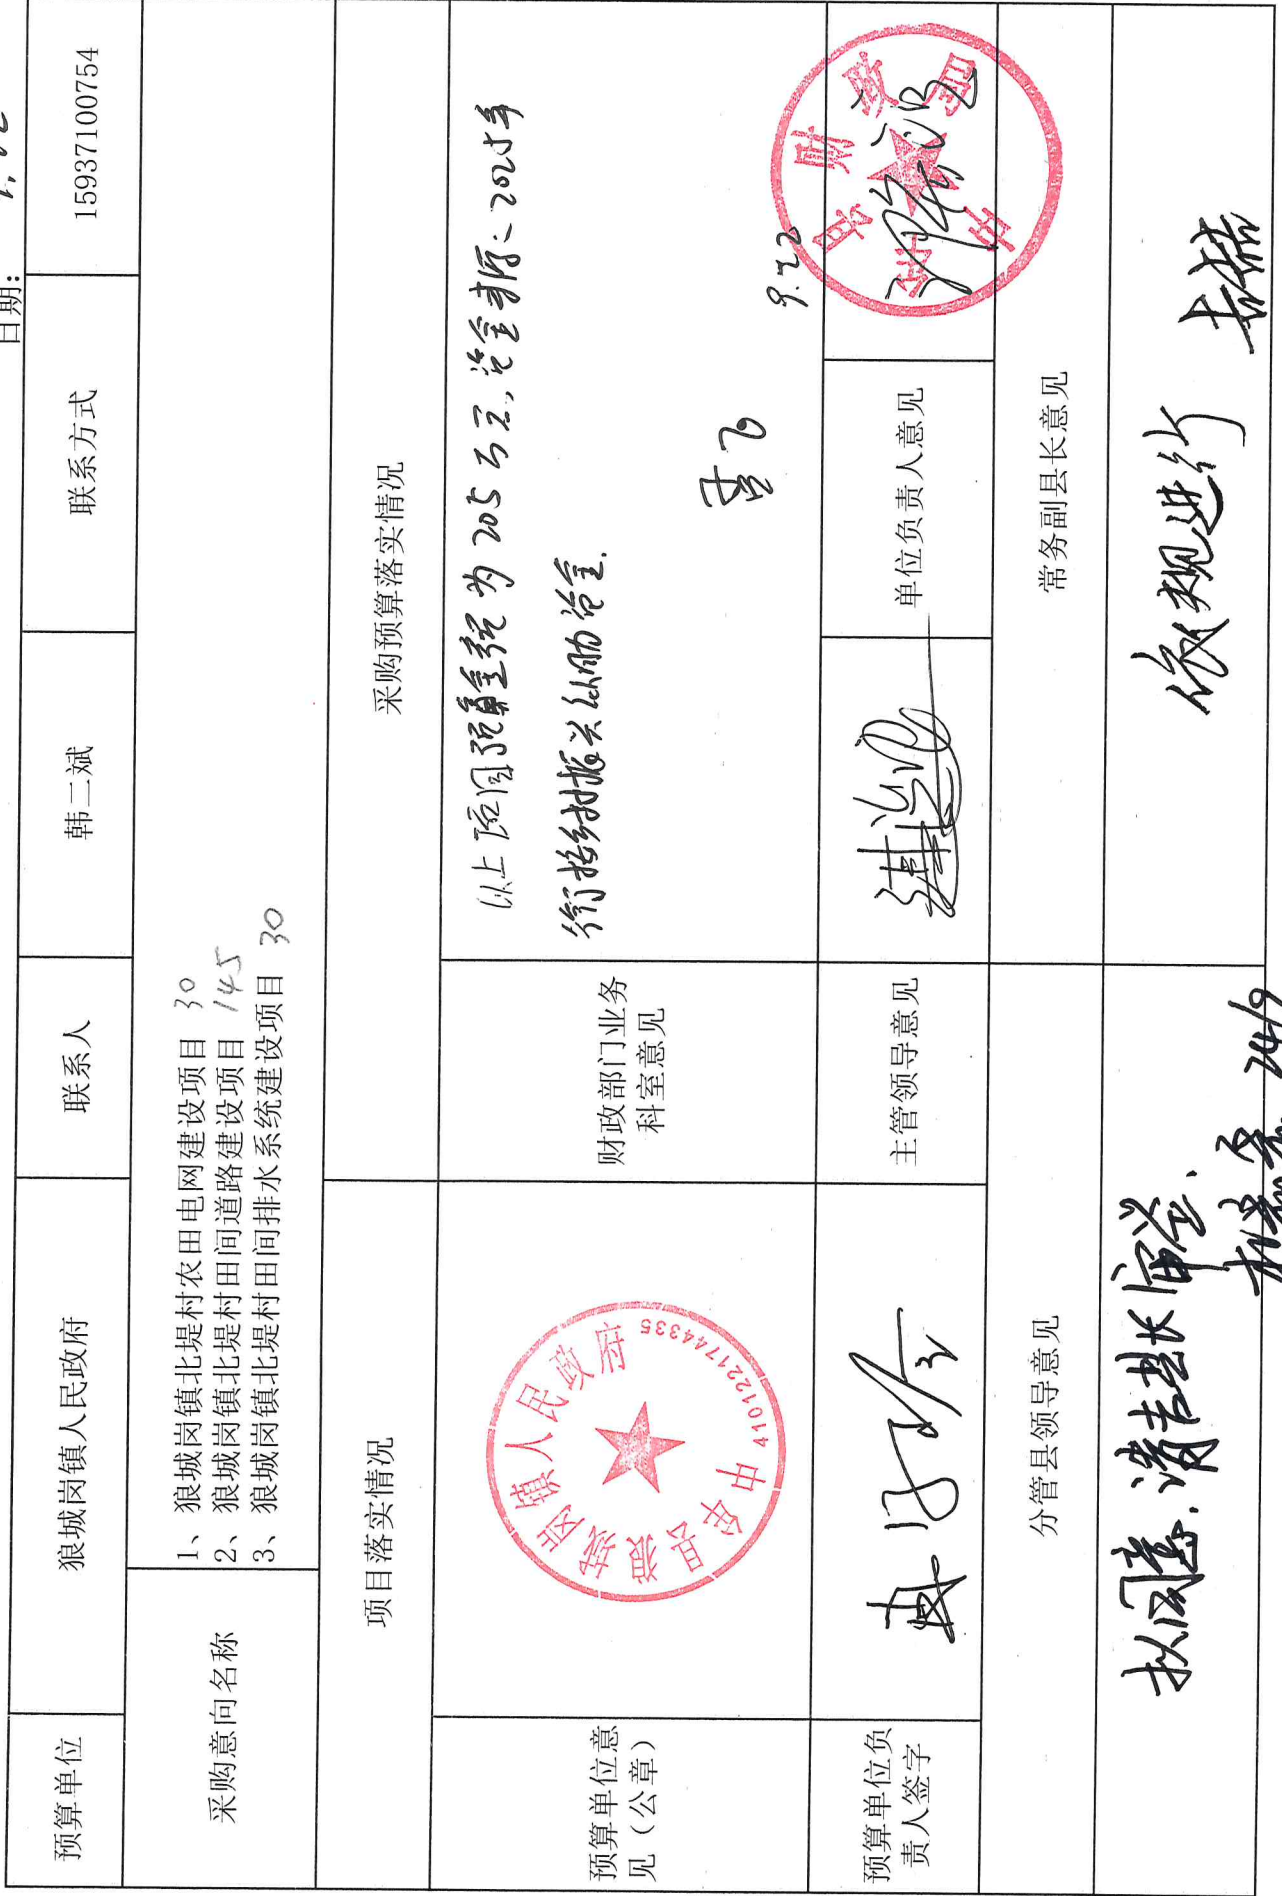 日期:
预算单位 狼城岗镇人民政府 联系人 韩二斌 联系方式 15937100754
采购意向名称
1、狼城岗镇北堤村农田电网建设项目 30
2、狼城岗镇北堤村田间道路建设项目 145
3、狼城岗镇北堤村田间排水系统建设项目 30
项目落实情况 采购预算落实情况
预算单位意
见（公章）
中牟县狼城岗镇人民政府
4101221744335
财政部门业务
科室意见
以上项目预算金额为205万元,资金来源:2025年
衔接乡村振兴补助资金.
9.22
预算单位负
责人签字
主管领导意见
单位负责人意见
中牟县财政局
分管县领导意见 常务副县长意见
拟同意.请吉县长审签.
24/9
依规进行